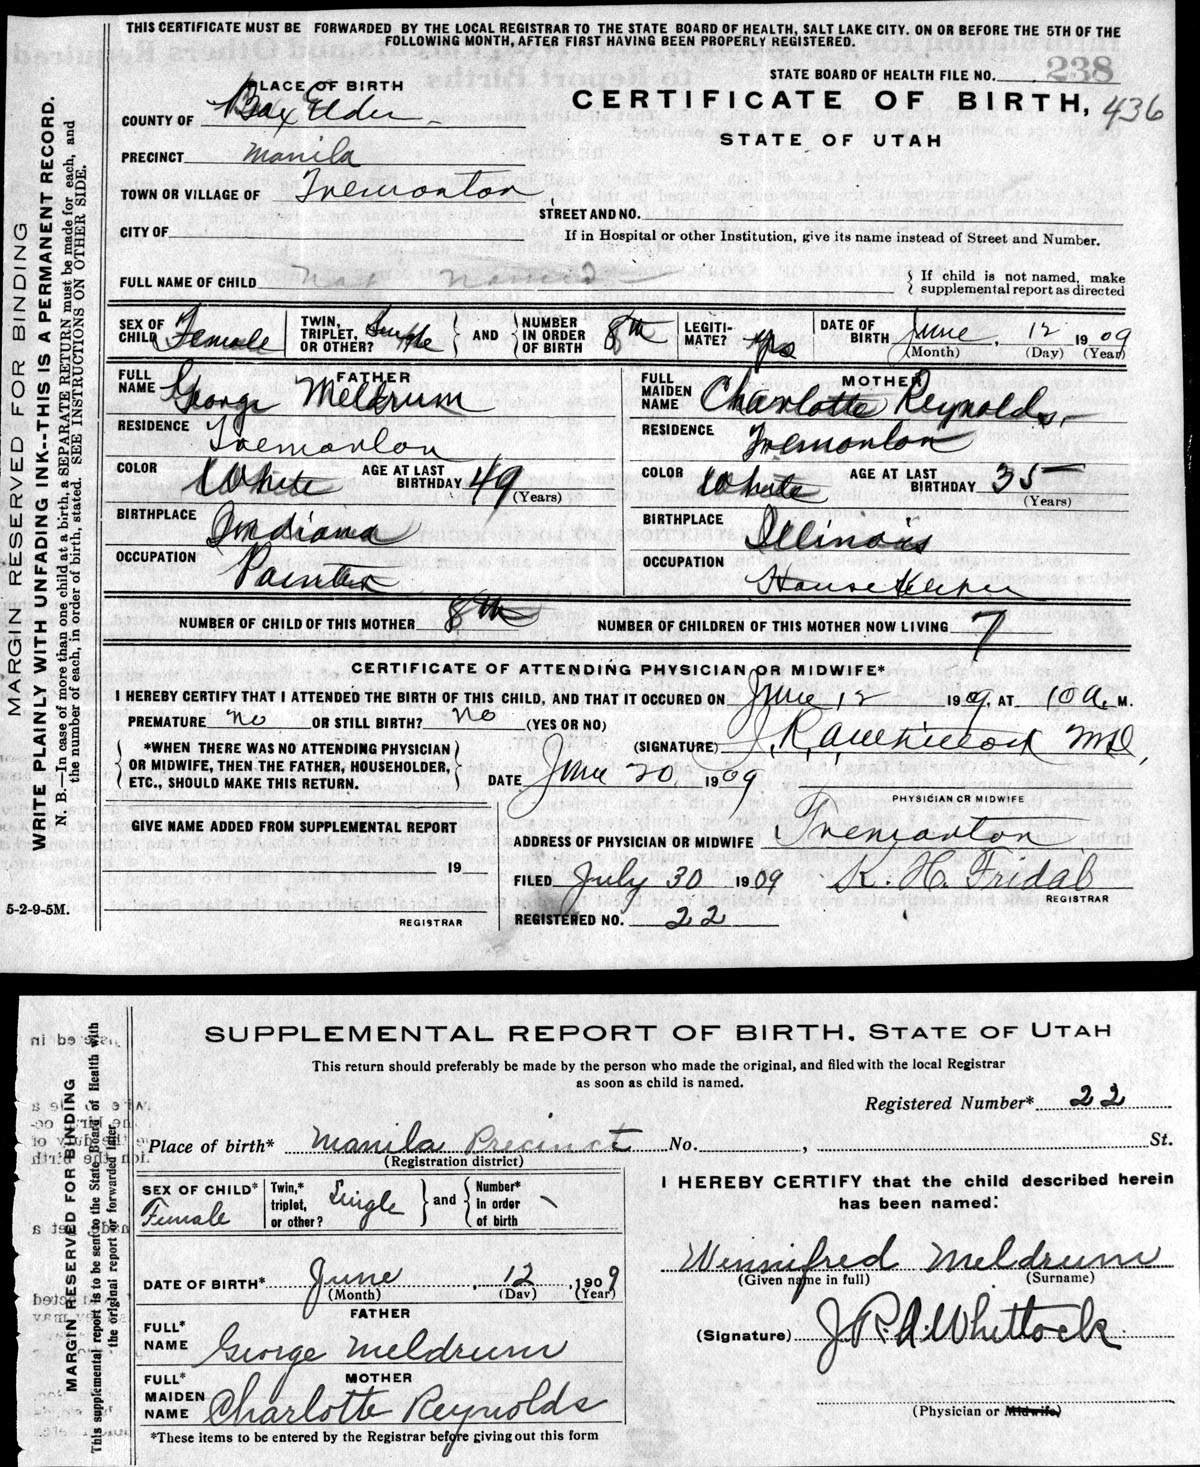 THIS CERTIFICATE MUST BE FORWARDED BY THE LOCAL REGISTRAR TO THE STATE BOARD OF HEALTH, SALT LAKE CITY. ON OR BEFORE THE 5TH OF THE
FOLLOWING MONTH, AFTER FIRST HAVING BEEN PROPERLY REGISTERED.
STATE BOARD OF HEALTH FILE NO. 238
PLACE OF BIRTH
CERTIFICATE OF BIRTH, 436
COUNTY OF Box Elder
STATE OF UTAH
PRECINCT Manila
TOWN OR VILLAGE OF Tremonton
STREET AND NO.
CITY OF
If in Hospital or other Institution, give its name instead of Street and Number.
FULL NAME OF CHILD Not Named
If child is not named, make
supplemental report as directed
SEX OF CHILD Female
TWIN, TRIPLET, OR OTHER? Single AND NUMBER IN ORDER OF BIRTH 8th
LEGITIMATE? yes
DATE OF BIRTH June 12 1909
(Month) (Day) (Year)
FATHER
FULL NAME George Meldrum
RESIDENCE Tremonton
COLOR White AGE AT LAST BIRTHDAY 49 (Years)
BIRTHPLACE Indiana
OCCUPATION Painter
MOTHER
FULL MAIDEN NAME Charlotte Reynolds
RESIDENCE Tremonton
COLOR White AGE AT LAST BIRTHDAY 35 (Years)
BIRTHPLACE Illinois
OCCUPATION House Keeper
NUMBER OF CHILD OF THIS MOTHER 8th NUMBER OF CHILDREN OF THIS MOTHER NOW LIVING 7
CERTIFICATE OF ATTENDING PHYSICIAN OR MIDWIFE*
I HEREBY CERTIFY THAT I ATTENDED THE BIRTH OF THIS CHILD, AND THAT IT OCCURED ON June 12 1909, AT 10 A. M.
PREMATURE no OR STILL BIRTH? no (YES OR NO)
*WHEN THERE WAS NO ATTENDING PHYSICIAN
OR MIDWIFE, THEN THE FATHER, HOUSEHOLDER,
ETC., SHOULD MAKE THIS RETURN.
(SIGNATURE) J. R. A. Whitlock MD,
DATE June 20, 1909
PHYSICIAN OR MIDWIFE
GIVE NAME ADDED FROM SUPPLEMENTAL REPORT
19
REGISTRAR
ADDRESS OF PHYSICIAN OR MIDWIFE Tremonton
FILED July 30 1909 K. H. Fridal
REGISTRAR
REGISTERED NO. 22
5-2-9-5M.
MARGIN RESERVED FOR BINDING
WRITE PLAINLY WITH UNFADING INK--THIS IS A PERMANENT RECORD.
N. B.—In case of more than one child at a birth, a SEPARATE RETURN must be made for each, and
the number of each, in order of birth, stated. SEE INSTRUCTIONS ON OTHER SIDE.
SUPPLEMENTAL REPORT OF BIRTH. STATE OF UTAH
This return should preferably be made by the person who made the original, and filed with the local Registrar
as soon as child is named.
Registered Number* 22
Place of birth* Manila Precinct No. , St.
(Registration district)
SEX OF CHILD* Female
Twin,* triplet, or other? Single and Number* in order of birth
DATE OF BIRTH* June , 12 , 1909
(Month) (Day) (Year)
FATHER
FULL* NAME George Meldrum
MOTHER
FULL* MAIDEN NAME Charlotte Reynolds
*These items to be entered by the Registrar before giving out this form
I HEREBY CERTIFY that the child described herein
has been named:
Winnifred Meldrum
(Given name in full) (Surname)
(Signature) J. R. A. Whitlock
(Physician or Midwife)
MARGIN RESERVED FOR BINDING
This supplemental report is to be sent to the State Board of Health with
the original report or forwarded later.